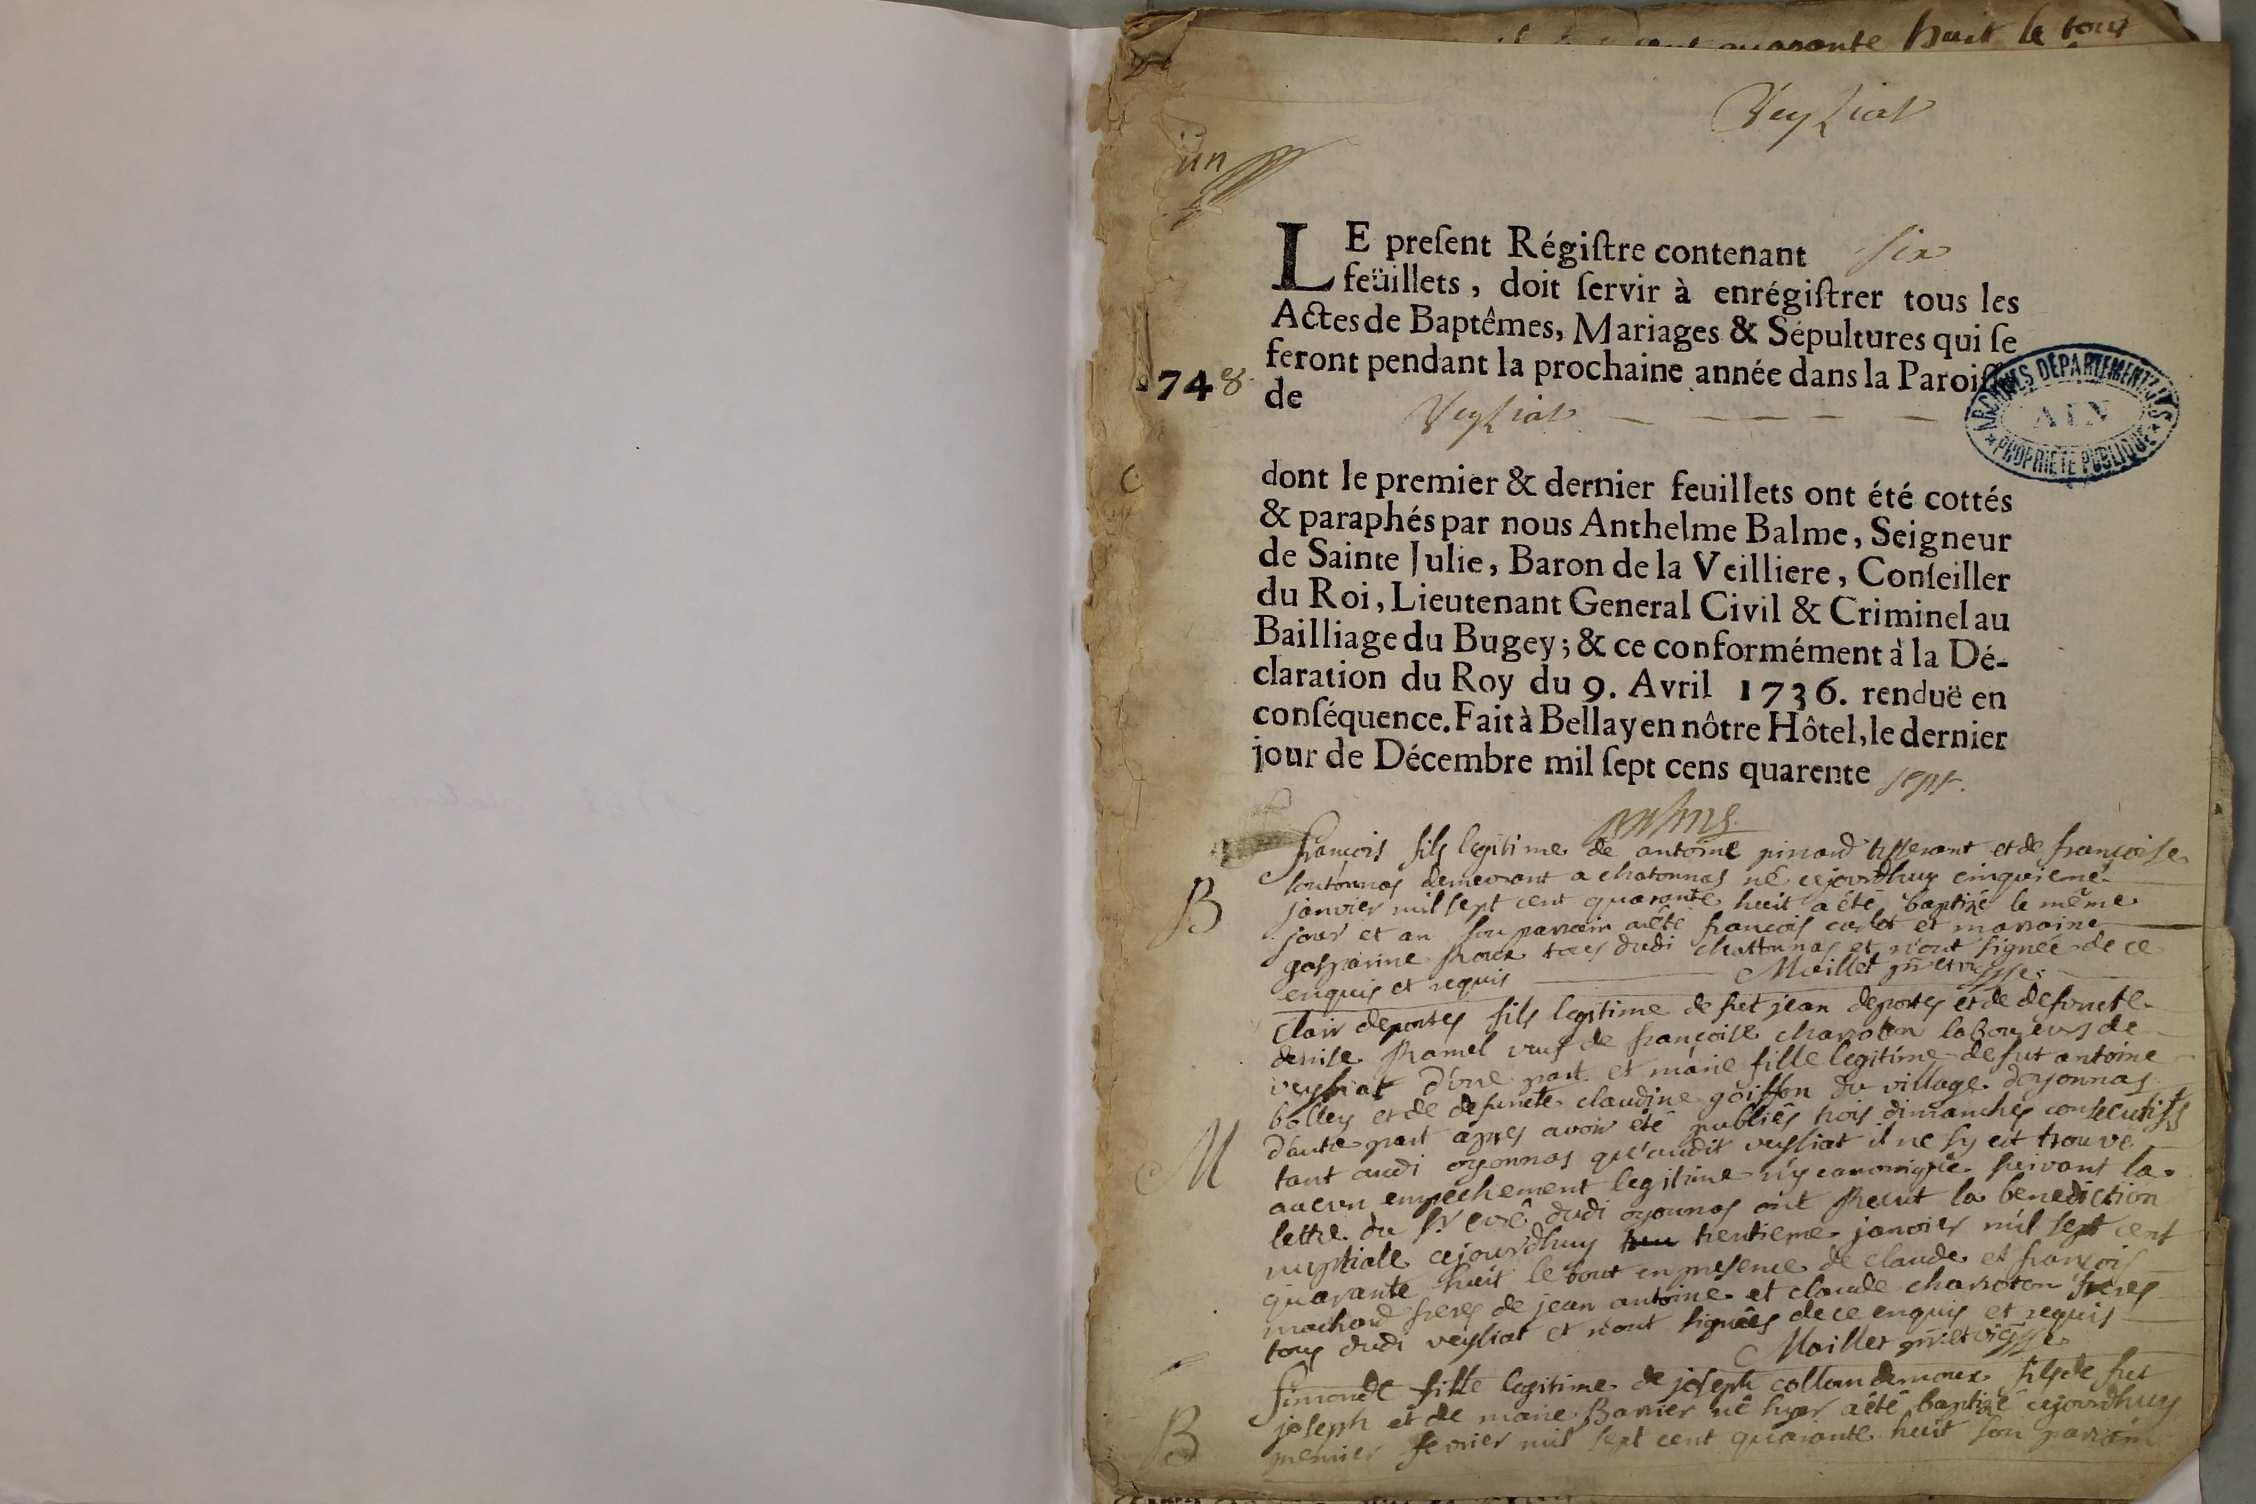 quarante huit le tout
Veyziat
un
LE preſent Régiſtre contenant six
feüillets, doit ſervir à enrégiſtrer tous les
Actes de Baptêmes, Mariages & Sépultures qui ſe
feront pendant la prochaine année dans la Paroiſſe
1748
de Veyziat
ARCHIVES DÉPARTEMENTALES
AIN
PROPRIÉTÉ PUBLIQUE
dont le premier & dernier feuillets ont été cottés
& paraphés par nous Anthelme Balme, Seigneur
de Sainte Julie, Baron de la Veilliere, Conſeiller
du Roi, Lieutenant General Civil & Criminel au
Bailliage du Bugey; & ce conformément à la Dé-
claration du Roy du 9. Avril 1736. renduë en
conſéquence. Fait à Bellay en nôtre Hôtel, le dernier
jour de Décembre mil ſept cens quarente sept.
françois fils legitime de antoine tisserant et de françoise
demeurant a chatonnas né cejourdhuy cinquieme
B
janvier mil sept cent quarante huit a été baptizé le même
jour et an son parrain a été françois carlet et marraine
gasparine Roux tous dudi chattonnas et n'ont signée de ce
enquis et requis Maillet
Clair deportes fils legitime de fut jean deportes et de defuncte
denise Ramel veuf de françoise charroton laboureurs de
veyziat d'une part et marie fille legitime de fut antoine
bolley et de defuncte claudine goiffon du village doyonnas
d'autre part apres avoir été publiés trois dimanches consecutifs
M
tant audi oyonnas qu'audit veyziat il ne sy est trouvé
aucun empechement legitime n'y canonique suivant la
lettre du Sr curé dudi oyonnas ont Recut la benediction
nuptiale cejourdhuy trentieme janvier mil sept cent
quarante huit le tout en presence de claude et françois
machard freres de jean antoine et claude charroton freres
tous dudi veyziat et n'ont signées de ce enquis et requis
Maillet
Simonde fille legitime de joseph collomdemoux fils de fut
joseph et de marie Barrier né hyer a été baptizé cejourdhuy
B
premier fevrier mil sept cent quarante huit son parrain